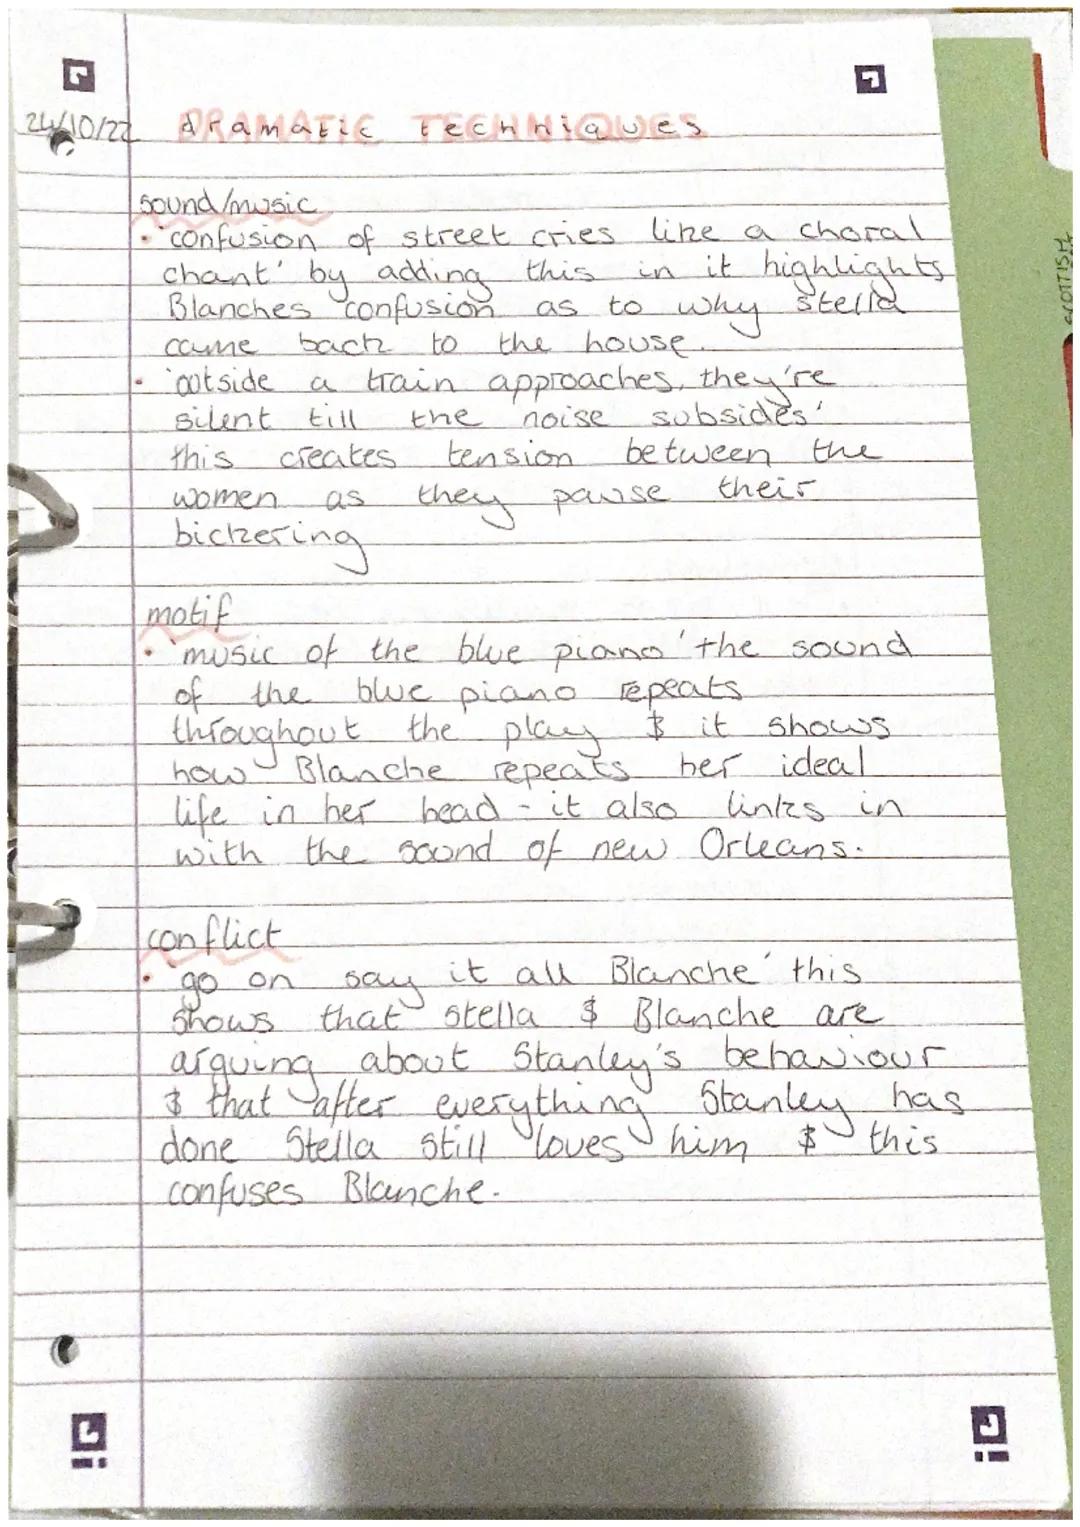 24/10/22 DRAMATIC TECHNIQUES
dramatic techniques
sound/music
• 'confusion of street cries like a choral
chant' by adding this in it highlights
Blanches confusion as to why Stella
came back to the house.
• 'outside a train approaches, they're
silent till the noise subsides'
this creates tension between the
women as they pause their
bickering
motif
• 'music of the blue piano' the sound
of the blue piano repeats
throughout the play & it shows
how Blanche repeats her ideal
life in her head - it also links in
with the sound of new Orleans.
conflict
• 'go on say it all Blanche' this
shows that stella & Blanche are
arguing about Stanley's behaviour
& that after everything Stanley has
done Stella still loves him & this
confuses Blanche.
SCOTTISH